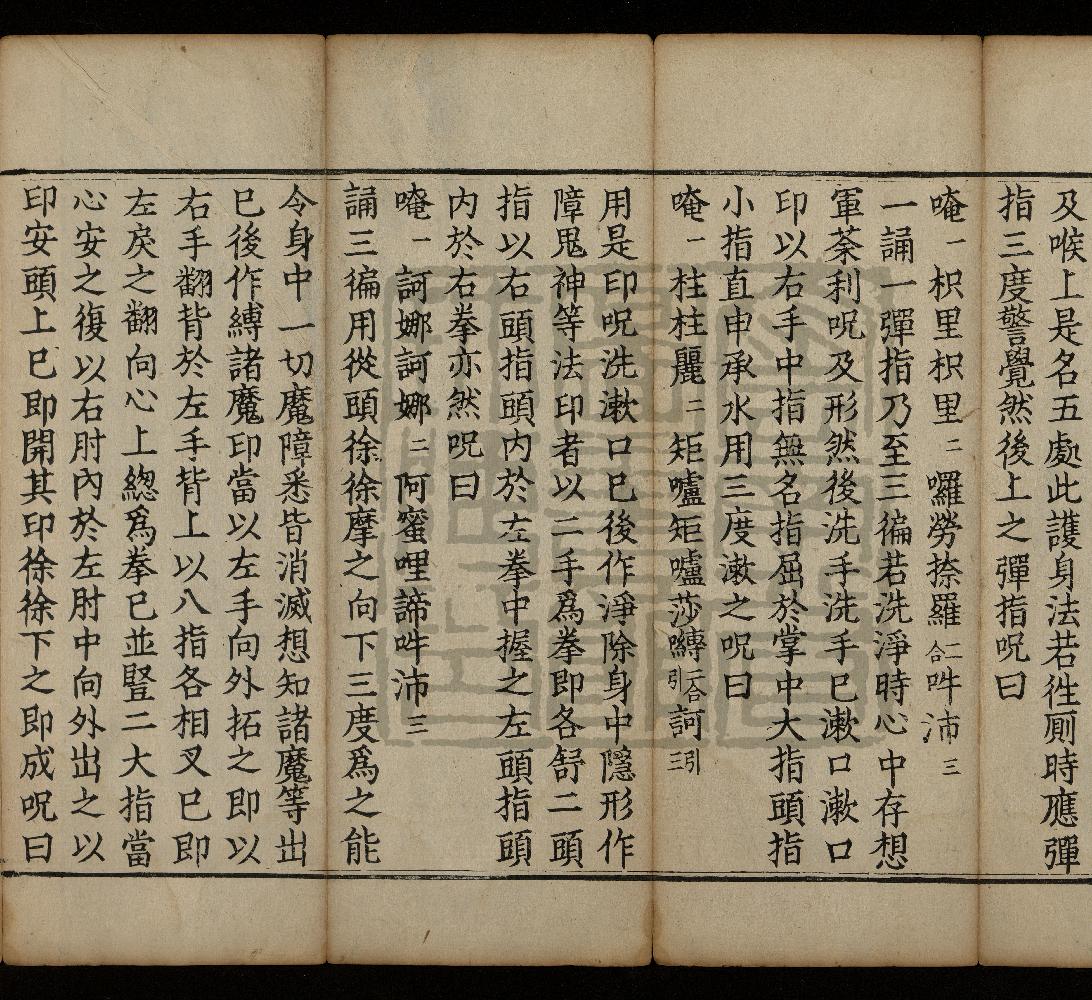 及喉上是名五處此護身法若往廁時應彈
指三度警覺然後上之彈指呪曰
唵一枳里枳里二囉勞捺羅二合吽沛三
一誦一彈指乃至三徧若洗淨時心中存想
軍荼利呪及形然後洗手洗手巳漱口漱口
印以右手中指無名指屈於掌中大指頭指
小指直申承水用三度漱之呪曰
唵一柱柱麗二矩嚧矩嚧莎嚩二合引訶引三
用是印呪洗漱口巳後作淨除身中隱形作
障鬼神等法印者以二手爲拳即各舒二頭
指以右頭指頭內於左拳中握之左頭指頭
內於右拳亦然呪曰
唵一訶娜訶娜二阿蜜哩諦吽沛三
誦三徧用從頭徐徐摩之向下三度爲之能
令身中一切魔障悉皆消滅想知諸魔等出
巳後作縛諸魔印當以左手向外拓之即以
右手翻背於左手背上以八指各相叉巳即
左戾之翻向心上總爲拳巳並豎二大指當
心安之復以右肘內於左肘中向外出之以
印安頭上巳即開其印徐徐下之即成呪曰